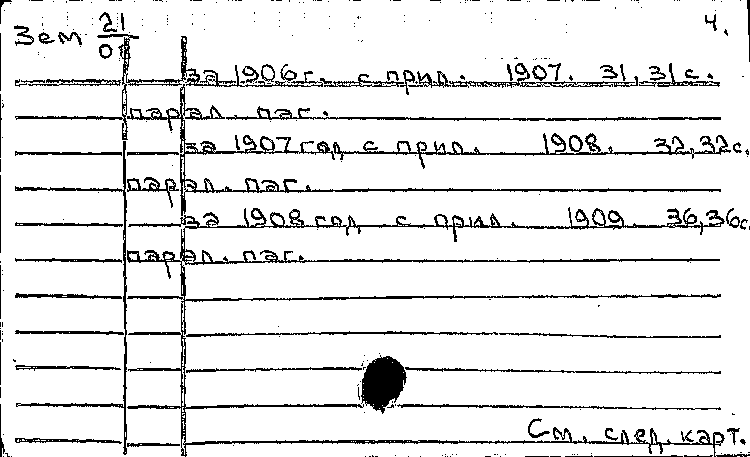 4.
Зем 21/01
за 1906г. с прил. 1907. 31,31с.
парал. паг.
за 1907 год с прил. 1908. 32,32с.
парал. паг.
за 1908 год с прил. 1909 36,36с.
парал. паг.
См. след. карт.